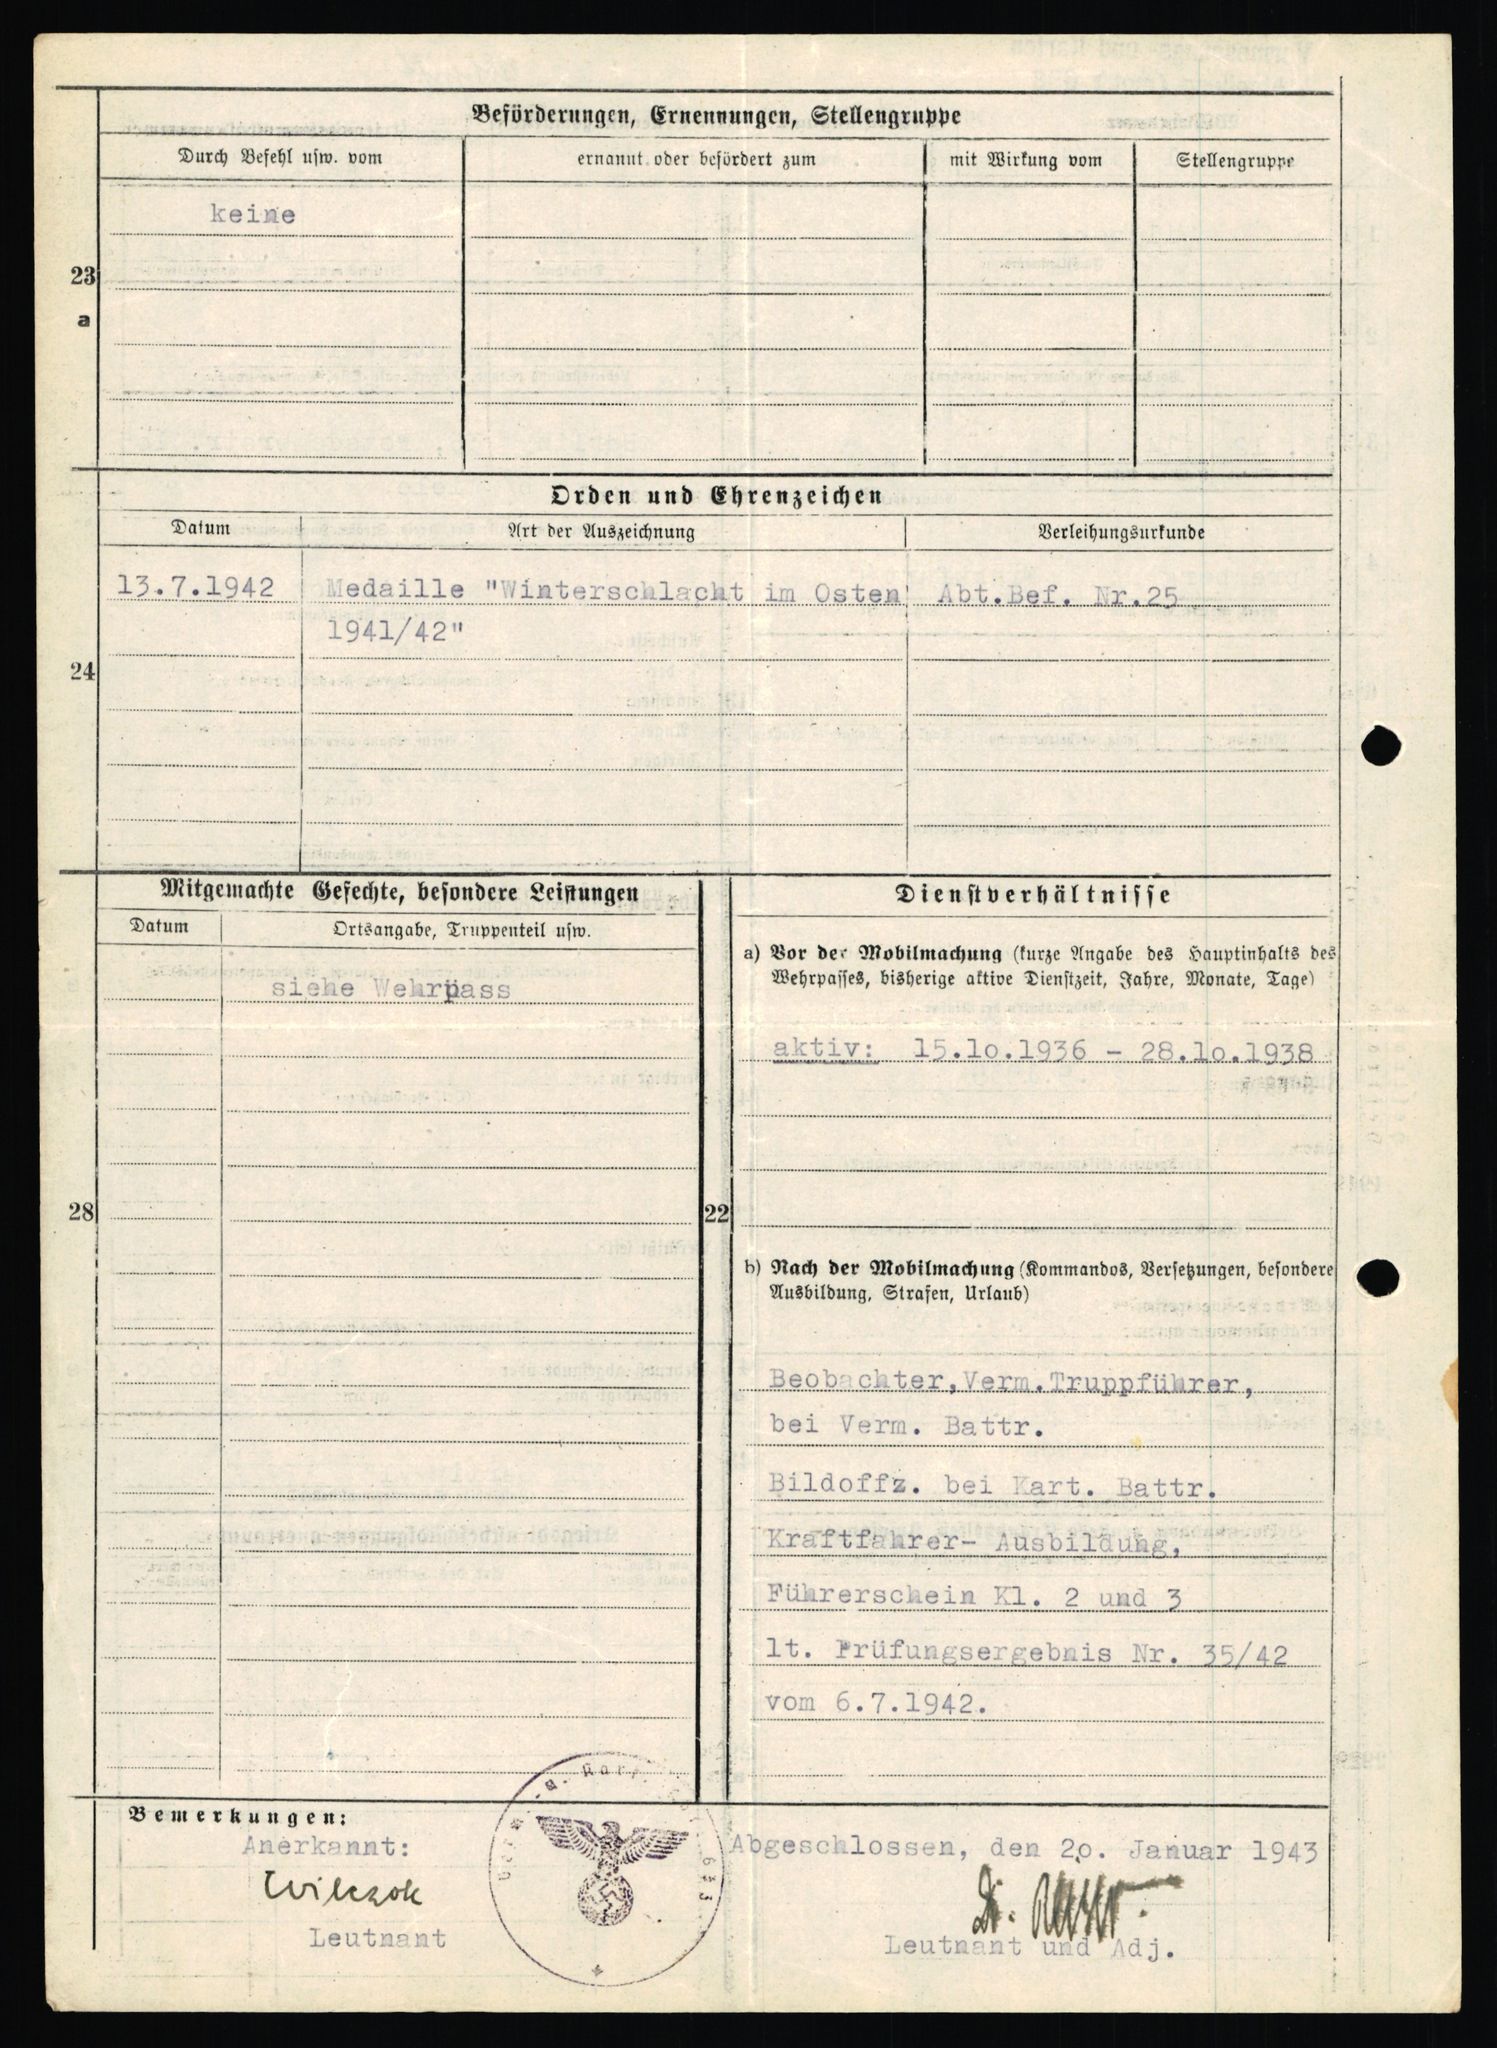 Beförderungen, Ernennungen, Stellengruppe
Durch Befehl usw. vom
ernannt oder befördert zum
mit Wirkung vom
Stellengruppe
keine
23
a
Orden und Ehrenzeichen
Datum
Art der Auszeichnung
Verleihungsurkunde
13.7.1942
Medaille "Winterschlacht im Osten
Abt.Bef. Nr.25
1941/42"
24
Mitgemachte Gefechte, besondere Leistungen
Datum
Ortsangabe, Truppenteil usw.
siehe Wehrpass
28
Dienstverhältnisse
a) Vor der Mobilmachung (kurze Angabe des Hauptinhalts des
Wehrpasses, bisherige aktive Dienstzeit, Jahre, Monate, Tage)
aktiv: 15.10.1936 - 28.10.1938
22
b) Nach der Mobilmachung (Kommandos, Versetzungen, besondere
Ausbildung, Strafen, Urlaub)
Beobachter,Verm.Truppführer,
bei Verm. Battr.
Bildoffz. bei Kart. Battr.
Kraftfahrer- Ausbildung,
Führerschein Kl. 2 und 3
lt. Prüfungsergebnis Nr. 35/42
vom 6.7.1942.
Bemerkungen:
Anerkannt:
Wilczok
Leutnant
Abgeschlossen, den 20. Januar 1943
Dr.
Leutnant und Adj.